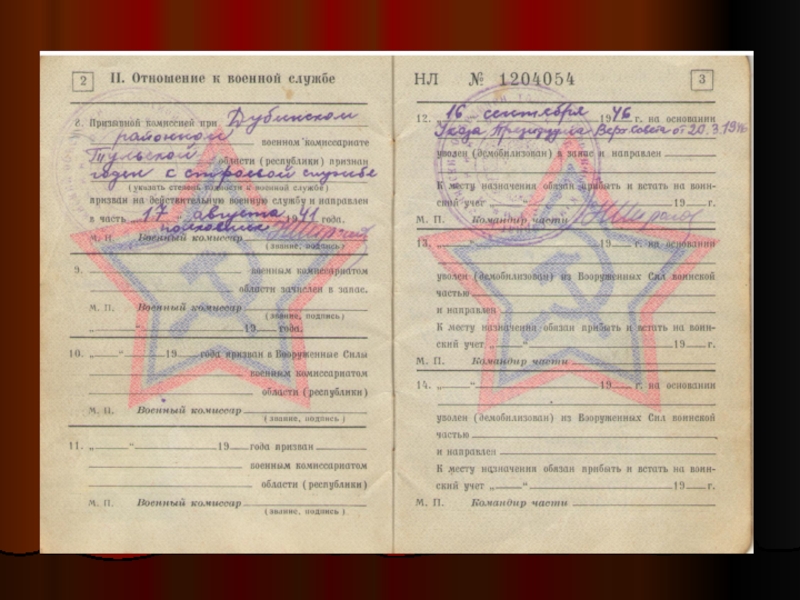 2 II. Отношение к военной службе
8. Призывной комиссией при Дубинском
районном военном комиссариате
Тульской области (республики) признан
годен к строевой службе
(указать степень годности к военной службе)
призван на действительную военную службу и направлен
в часть „17" августа 1941 года.
полковник
М. П. Военный комиссар
(звание, подпись)
9. военным комиссариатом
области зачислен в запас.
М. П. Военный комиссар
(звание, подпись)
„ " 19 года.
10. „ " 19 года призван в Вооруженные Силы
военным комиссариатом
области (республики)
М. П. Военный комиссар
(звание, подпись)
11. „ " 19 года призван
военным комиссариатом
области (республики)
М. П. Военный комиссар
(звание, подпись)
НЛ № 1204054 3
12. „16" сентября 1946 г. на основании
Указа Президиума Верх Совета от 20.3.1946
уволен (демобилизован) в запас и направлен
К месту назначения обязан прибыть и встать на воин-
ский учет „ " 19 г.
М. П. Командир части
13. „ " 19 г. на основании
уволен (демобилизован) из Вооруженных Сил воинской
частью
и направлен
К месту назначения обязан прибыть и встать на воин-
ский учет „ " 19 г.
М. П. Командир части
14. „ " 19 г. на основании
уволен (демобилизован) из Вооруженных Сил воинской
частью
и направлен
К месту назначения обязан прибыть и встать на воин-
ский учет „ " 19 г.
М. П. Командир части